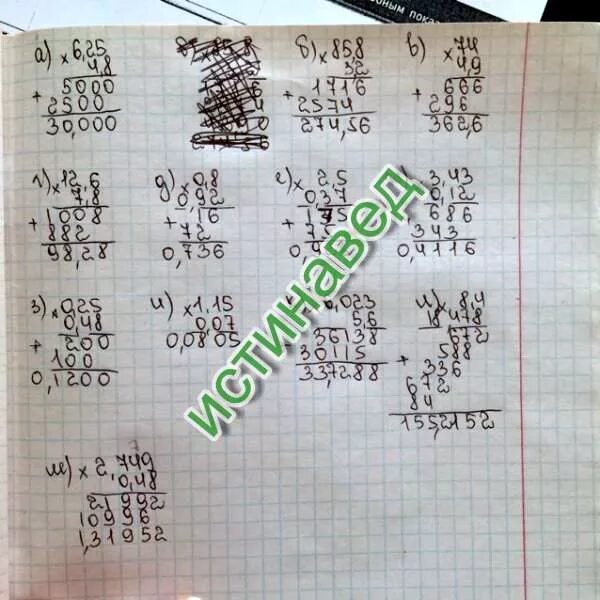 а) × 6,25
4,8
+ 5000
2500
30,000
б) × 85,8
3,2
+ 1716
2574
274,56
в) × 74
4,9
+ 666
296
362,6
г) × 12,6
7,8
+ 1008
882
98,28
д) × 0,8
0,92
+ 16
72
0,736
е) × 2,5
0,37
+ 175
75
× 3,43
0,12
686
343
0,4116
з) × 0,25
0,48
+ 200
100
0,1200
и) × 1,15
0,07
0,0805
,023
5,6
36138
30115
33,7288
× 8,4
18 478
672
+ 588
336
672
84
155,2152
м) × 2,749
0,48
21992
10996
1,31952
ИСТИНАВЕД